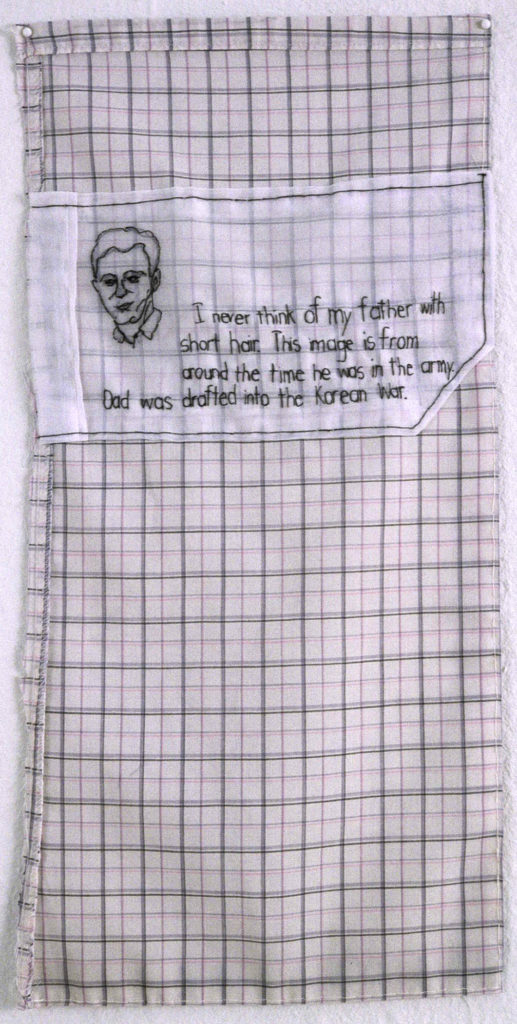 I never think of my father with
short hair. This image is from
around the time he was in the army.
Dad was drafted into the Korean War.